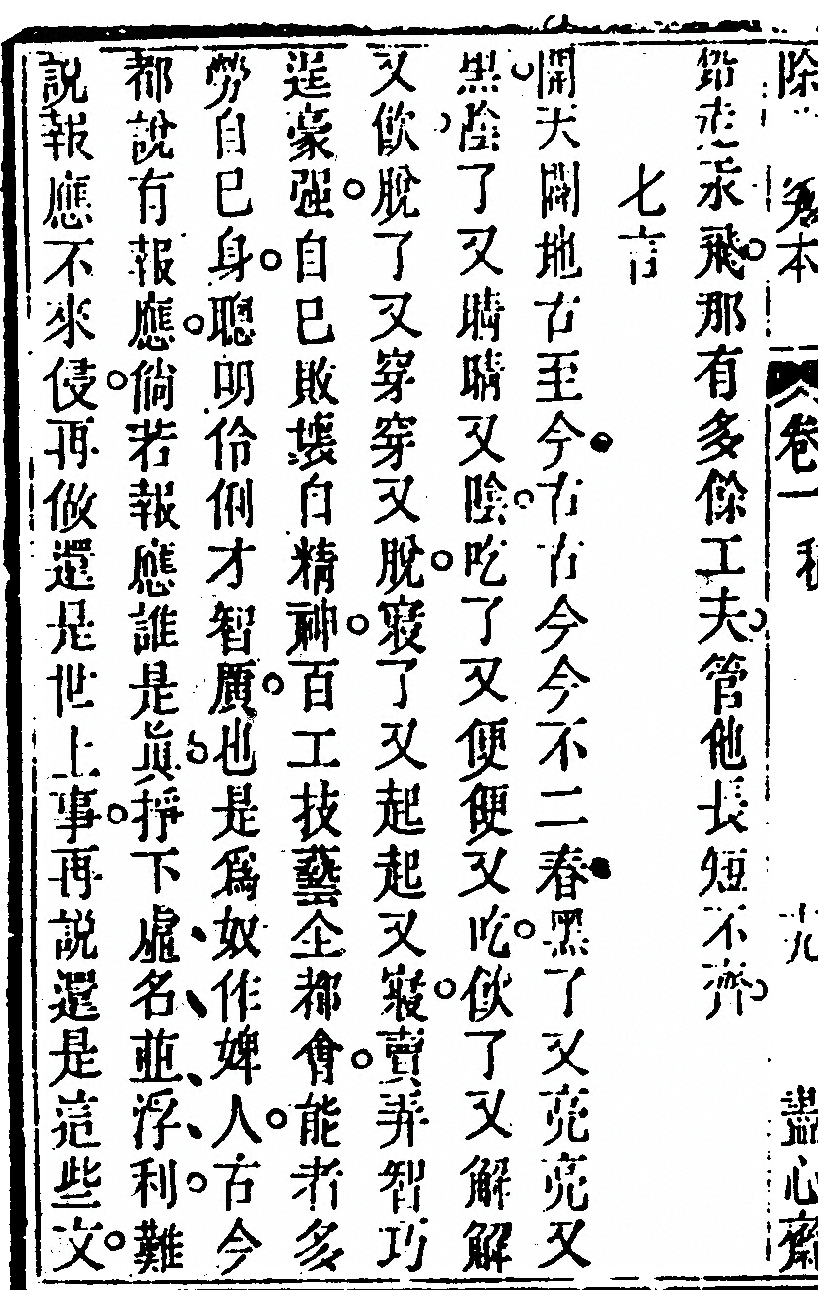 除 本 卷一 盡心齋
鉛走汞飛那有多餘工夫管他長短不齊
七言
開天闢地古至今古古今今不二春黑了又亮亮又
黑陰了又晴晴又陰吃了又便便又吃飲了又解解
又飲脫了又穿穿又脫寢了又起起又寢賣弄智巧
逞豪强自已敗壞自精神百工技藝全都會能者多
勞自已身聰明伶俐才智廣也是爲奴作婢人古今
都說有報應倘若報應誰是眞掙下虛名並浮利難
說報應不來侵再做還是世上事再說還是這些文